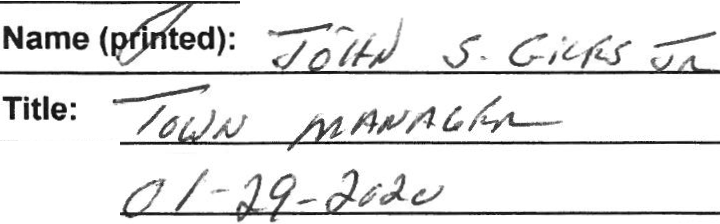 Name (printed): JOHN S. GILES JR
Title: TOWN MANAGER
01-29-2020